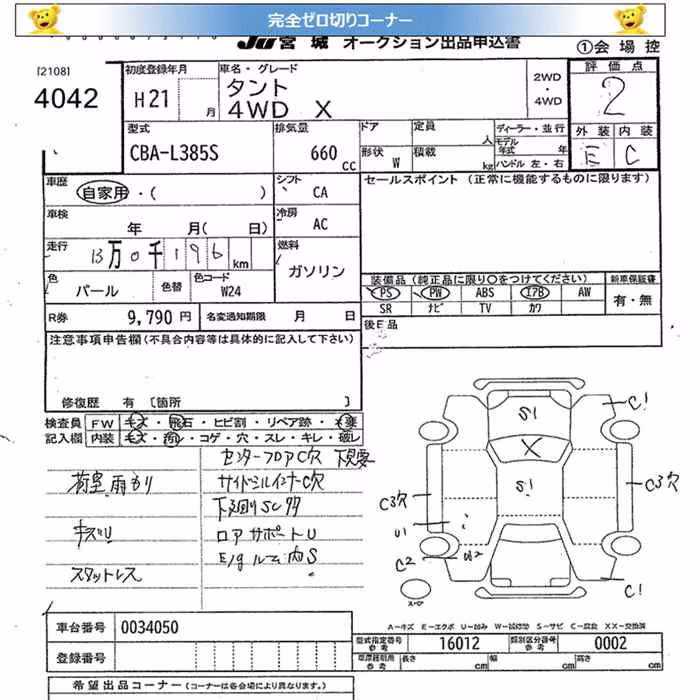 完全ゼロ切りコーナー
JU宮城 オークション出品申込書
①会場控
[2108]
4042
初度登録年月
H21 月
車名・グレード
タント
4WD X
2WD
・
4WD
評価点
2
型式
CBA-L385S
排気量
660 cc
ドア
定員 人
ディーラー・並行
モデル年式 年
形状 W
積載 kg
ハンドル 左・右
外装 内装
E C
車歴
自家用・( )
シフト
CA
セールスポイント (正常に機能するものに限ります)
車検
年 月( 日)
冷房
AC
走行
13万0千196km
燃料
ガソリン
色
パール
色替
色コード
W24
装備品(純正品に限り○をつけてください)
新車保証書
PS PW ABS エアB AW
有・無
SR ナビ TV カワ
R券 9,790円
名変通知期限 月 日
後日品
注意事項申告欄(不具合内容等は具体的に記入して下さい)
修復歴 有 [箇所 ]
検査員 FW キズ・飛石・ヒビ割・リペア跡・
記入欄 内装 キズ・汚れ・コゲ・穴・スレ・キレ・破レ
センターフロアC穴 下見要
荷室雨もり
サイドシルインナーC穴
下廻りSC
キズU
ロアサポートU
E/gルーム内S
スタットレス
S1
C1
X
S1
C3穴
C3穴
U1
C2
C1
スペア
A-キズ E-エクボ U-凹み W-補修跡 S-サビ C-腐食 XX-交換済
車台番号 0034050
型式指定番号 参考 16012
類別区分番号 参考 0002
登録番号
車庫証明用 参考 長さ cm 幅 cm 高さ cm
希望出品コーナー(コーナーは各会場により異なります。)